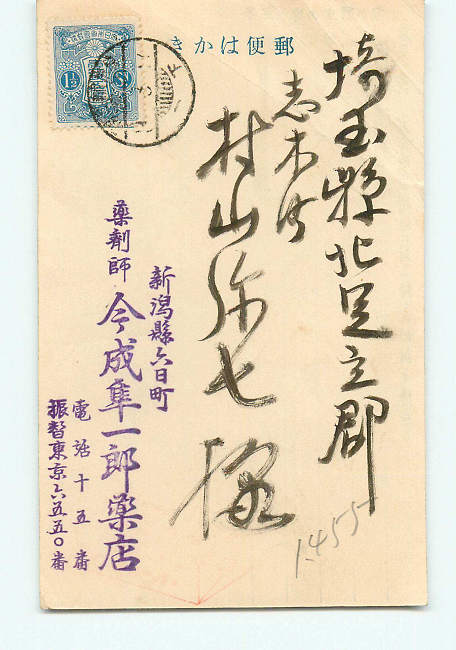 郵便はかき
埼玉縣北足立郡
志木町
村山弥七様
新潟縣六日町
藥劑師
今成隼一郎藥店
電話十五番
振替東京六五五〇番
1455
1½